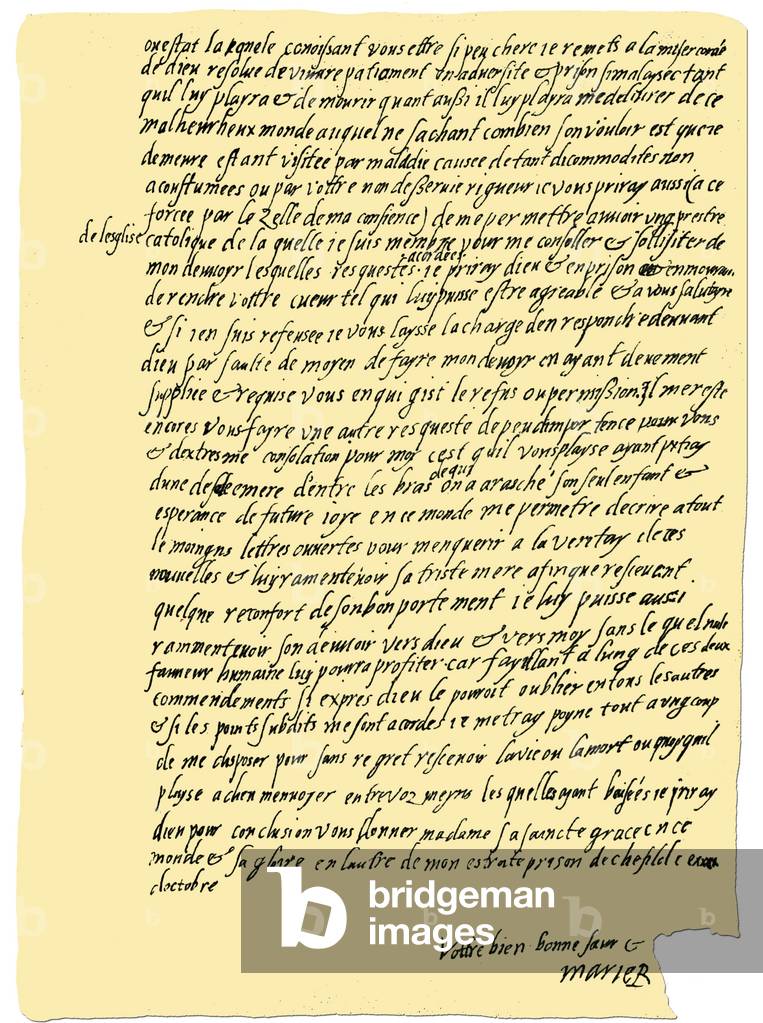 ou estat la quele conoissant vous estre si peu chere ie remets a la misericorde
de dieu resolue de vivvre patiament en adversite & prison si malaysee tant
quil luy playra & de mourir quant aussi il luy playra me delivrer de ce
malheurheux monde auquel ne sachant combien son vouloir est que ie
demeure estant visitee par maladie causee de tant dicommodites non
acoustumees ou par vottre non desservie rigueur ie vous priray aussi (a ce
forcee par le zelle de ma consience) de me permettre avvoir ung prestre
de lesglise catolique de la quelle ie suis membre pour me consoller & sollisiter de
mon devvoyr lesquelles resquestes acordees ie priray dieu & en prison & en mourant
de rendre vottre cueur tel qui luy puisse estre agreable & a vous salutayre
& si ien suis refusee ie vous laysse la charge den respondre devvant
dieu par faulte de moyen de fayre mon devvoyr en ayant deuement
suppliee & requise vous en qui gist le refus ou permission. Il me reste
encores vous fayre une autre resqueste de peu dimportence pour vous
& dextresme consolation pour moy cest quil vous playse ayant pitay
dune desolee mere dentre les bras de qui on a arasche son seul enfant &
esperance de future ioye en ce monde me permetre descrire a tout
le moingns lettres ouvertes pour menquerir a la veritay de ces
nouvelles & luy ramentevoir sa triste mere afin que resievent
quelque reconfort de son bon portement ie luy puisse aussi
rammentevoir son devvoir vers dieu & vers moy sans le quel nule
faveur humaine luy pourra profiter car fayllant a lung de ces deux
commendements si expres dieu le pouroit oublier en tous les autres
& si les points subdits me sont acordes ie metray poyne tout a ung coup
de me disposer pour sans regret rescevoir la vie ou la mort ou quoy quil
playse a dieu menvoyer entre voz meyns lesquelles ayant baisées ie priray
dieu pour conclusion vous donner madame sa saincte grace en ce
monde & sa gloire en lautre de mon estroite prison de chefild le
doctobre
Vottre bien bonne sœur &
MARIE R
bridgeman
images